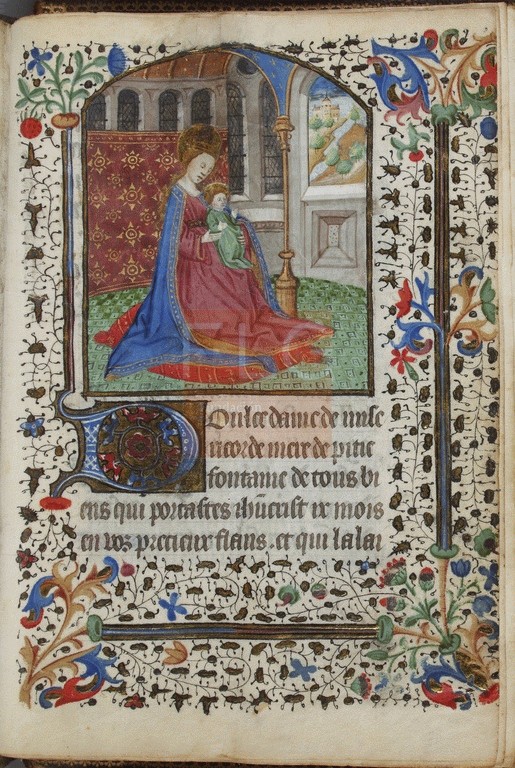 Doulce dame de mise
ricorde mere de pitie
fontaine de tous bi
ens qui portastes ihucrist ix mois
en voz precieux flans. et qui lalai